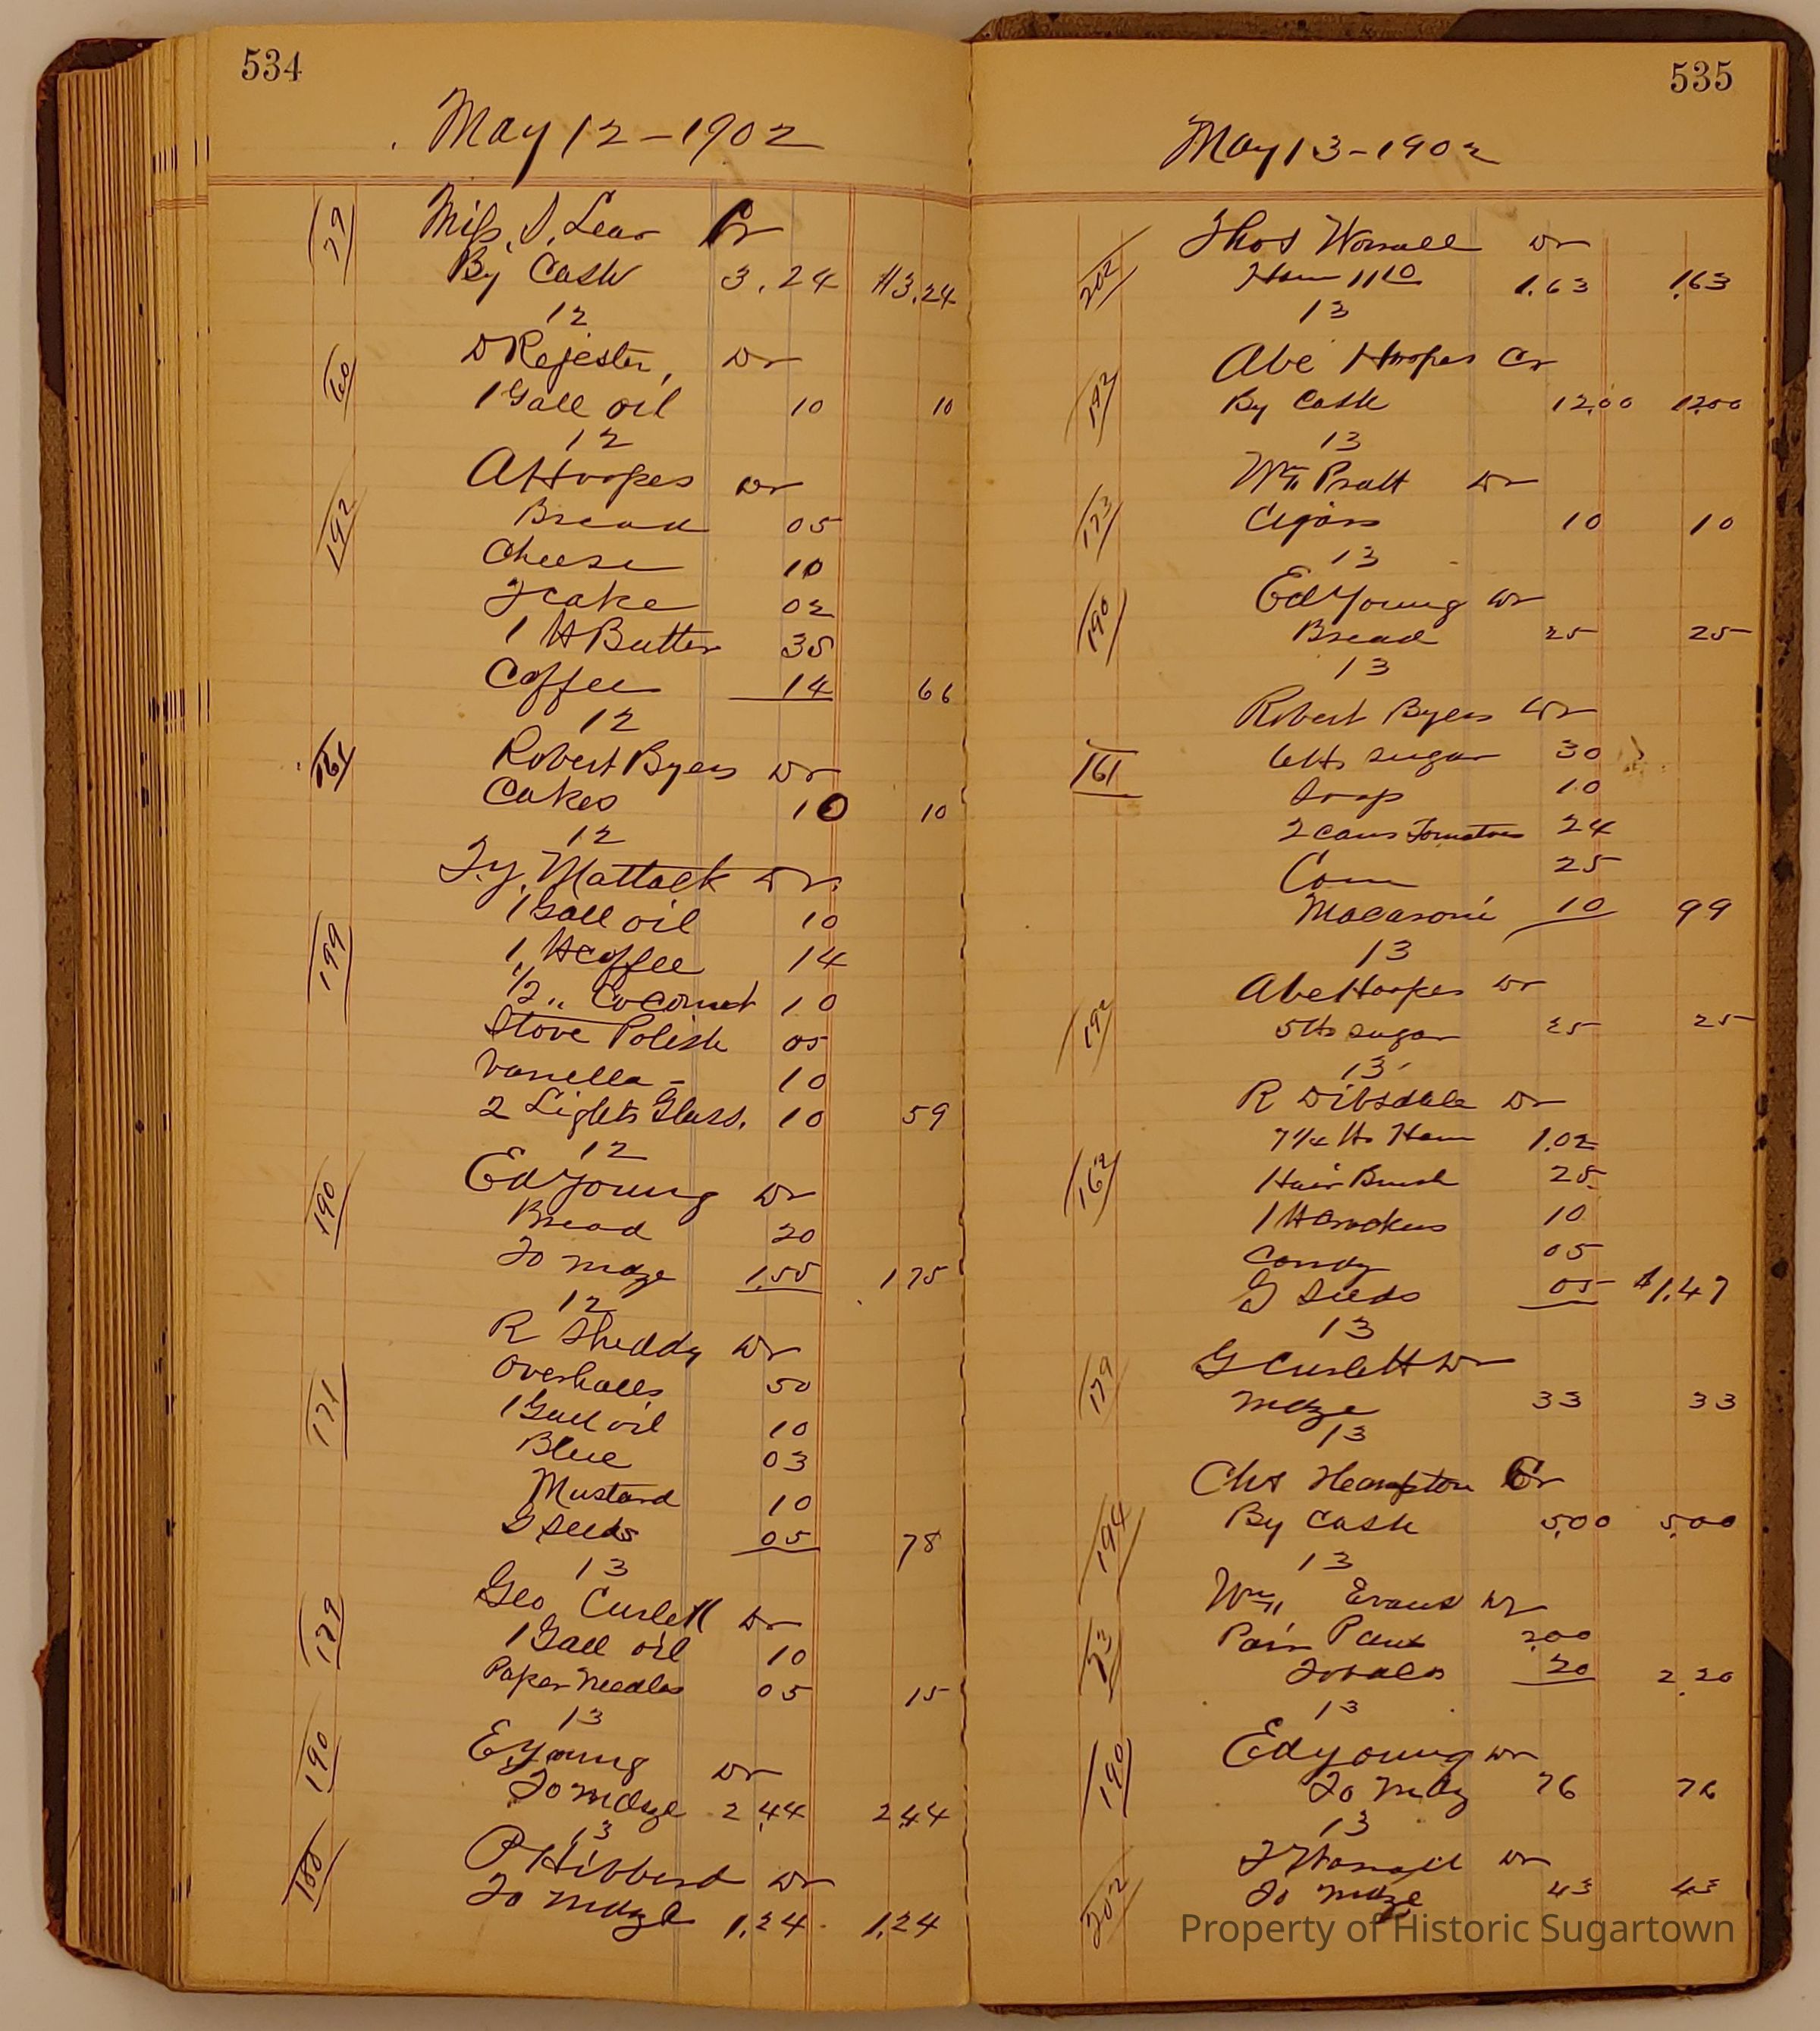 534
May 12 - 1902
79
Miss. S. Lear Cr
By Cash 3.24 $3.24
12
60
D Rejester, Dr
1 Gall oil 10 10
12
192
A Hoopes Dr
Bread 05
Cheese 10
Ycake 02
1 lb Butter 35
Coffee 14 66
12
161
Robert Byers Dr
Cakes 10 10
12
T.y. Mattack Dr.
199
1 Gall oil 10
1 lb coffee 14
1/2 " Cocornut 10
Stove Polish 05
Vanella - 10
2 Lights Glass. 10 59
12
190
Ed Young Dr
Bread 20
To mdze 1.55 1 75
12
R Sheddy Dr
171
Overhalls 50
1 Gall oil 10
Blue 03
Mustard 10
G Seeds 05 78
13
179
Geo Curlett Dr
1 Gall oil 10
Paper Needles 05 15
13
190
E Young Dr
To mdze 2.44 2.44
13
188
P Hibberd Dr
To mdze 1.24 1.24
535
May 13 - 1902
202
Thos Worrall Dr
Ham 11 1.63 1.63
13
192
Abe Hoopes Cr
By Cash 12.00 12.00
13
173
Wm Pratt Dr
Cigars 10 10
13
190
Ed Young Dr
Bread 25 25
13
Robert Byers Dr
161
6 lbs sugar 30
Soap 10
2 cans Tomatoes 24
Corn 25
Macaroni 10 99
13
192
Abe Hoopes Dr
5 lbs sugar 25 25
13
R Dibsdale Dr
162
7 1/4 lbs Ham 1.02
Hair Brush 25
1 lb Crackers 10
Candy 05
G Seeds 05 $1.47
13
179
G Curlett Dr
mdze 33 33
13
194
Chs Heampton Cr
By Cash 5.00 5.00
13
Wm Evans Dr
73
Pair Pants 2.00
20 2.20
13
190
Ed young Dr
To mdz 76 76
13
202
T Worrall Dr
To mdze 43 43
Property of Historic Sugartown